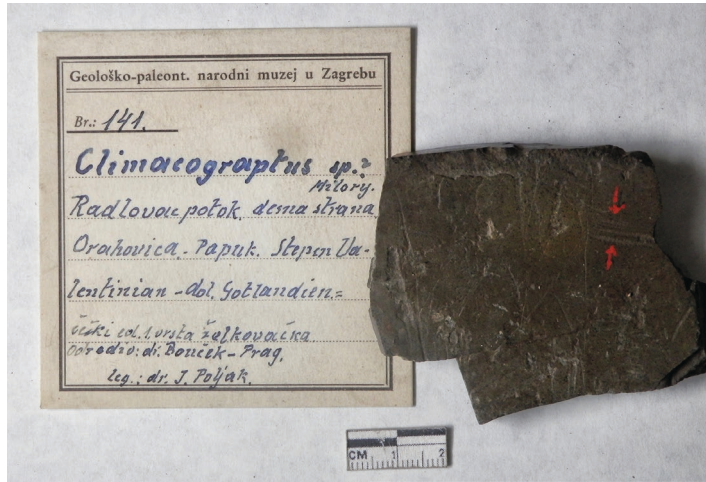 Geološko-paleont. narodni muzej u Zagrebu
Br.: 141.
Climacograptus sp.?
Radlovac potok, desna strana
Orahovica - Papuk. Stepen Va-
lentinian - dol. Gotlandien. =
želkovačka
Odredio: dr. Bouček - Prag.
leg.: dr. J. Poljak.
CM 1 2